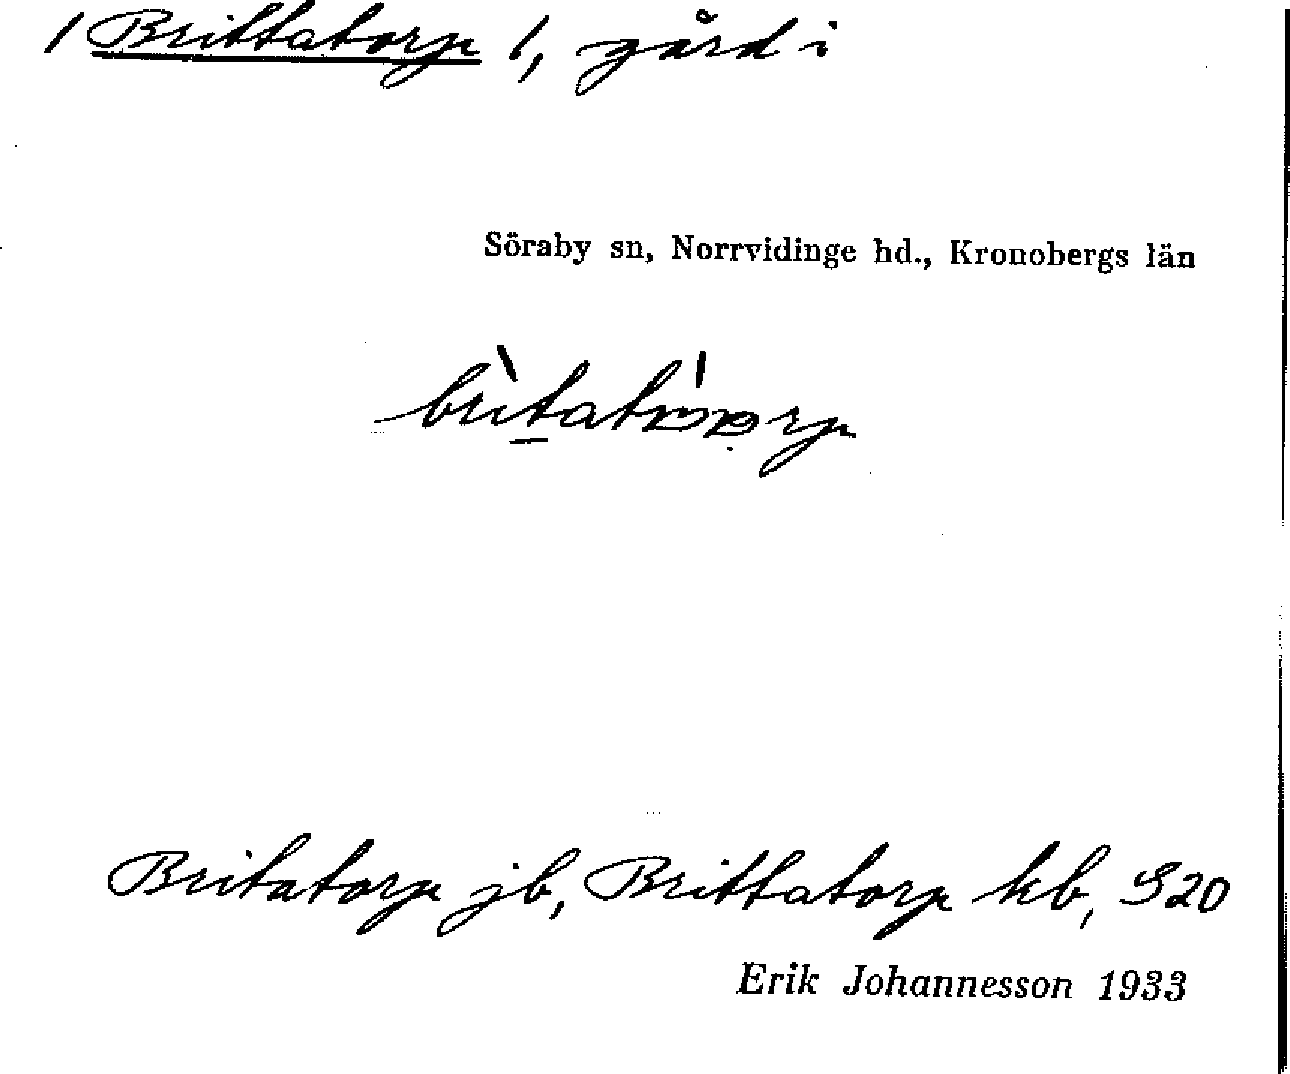 / Brittatorp /, gård i
Söraby sn, Norrvidinge hd., Kronobergs län
Britatorp jb, Brittatorp kb, S20
Erik Johannesson 1933